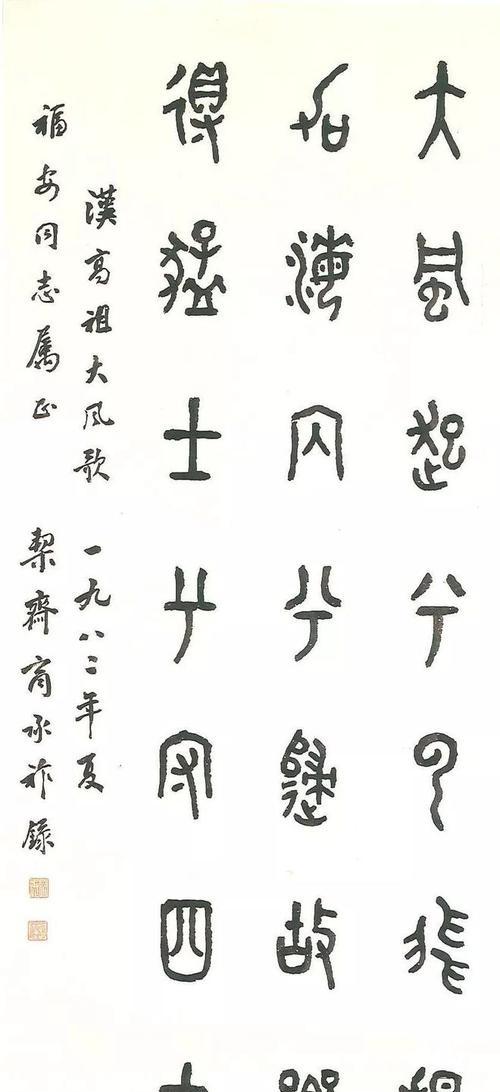 大風起兮云飛
加海內兮歸故
得猛士兮守四
漢高祖大風歌 一九八二年夏
福安同志屬正 栔齋商承祚錄